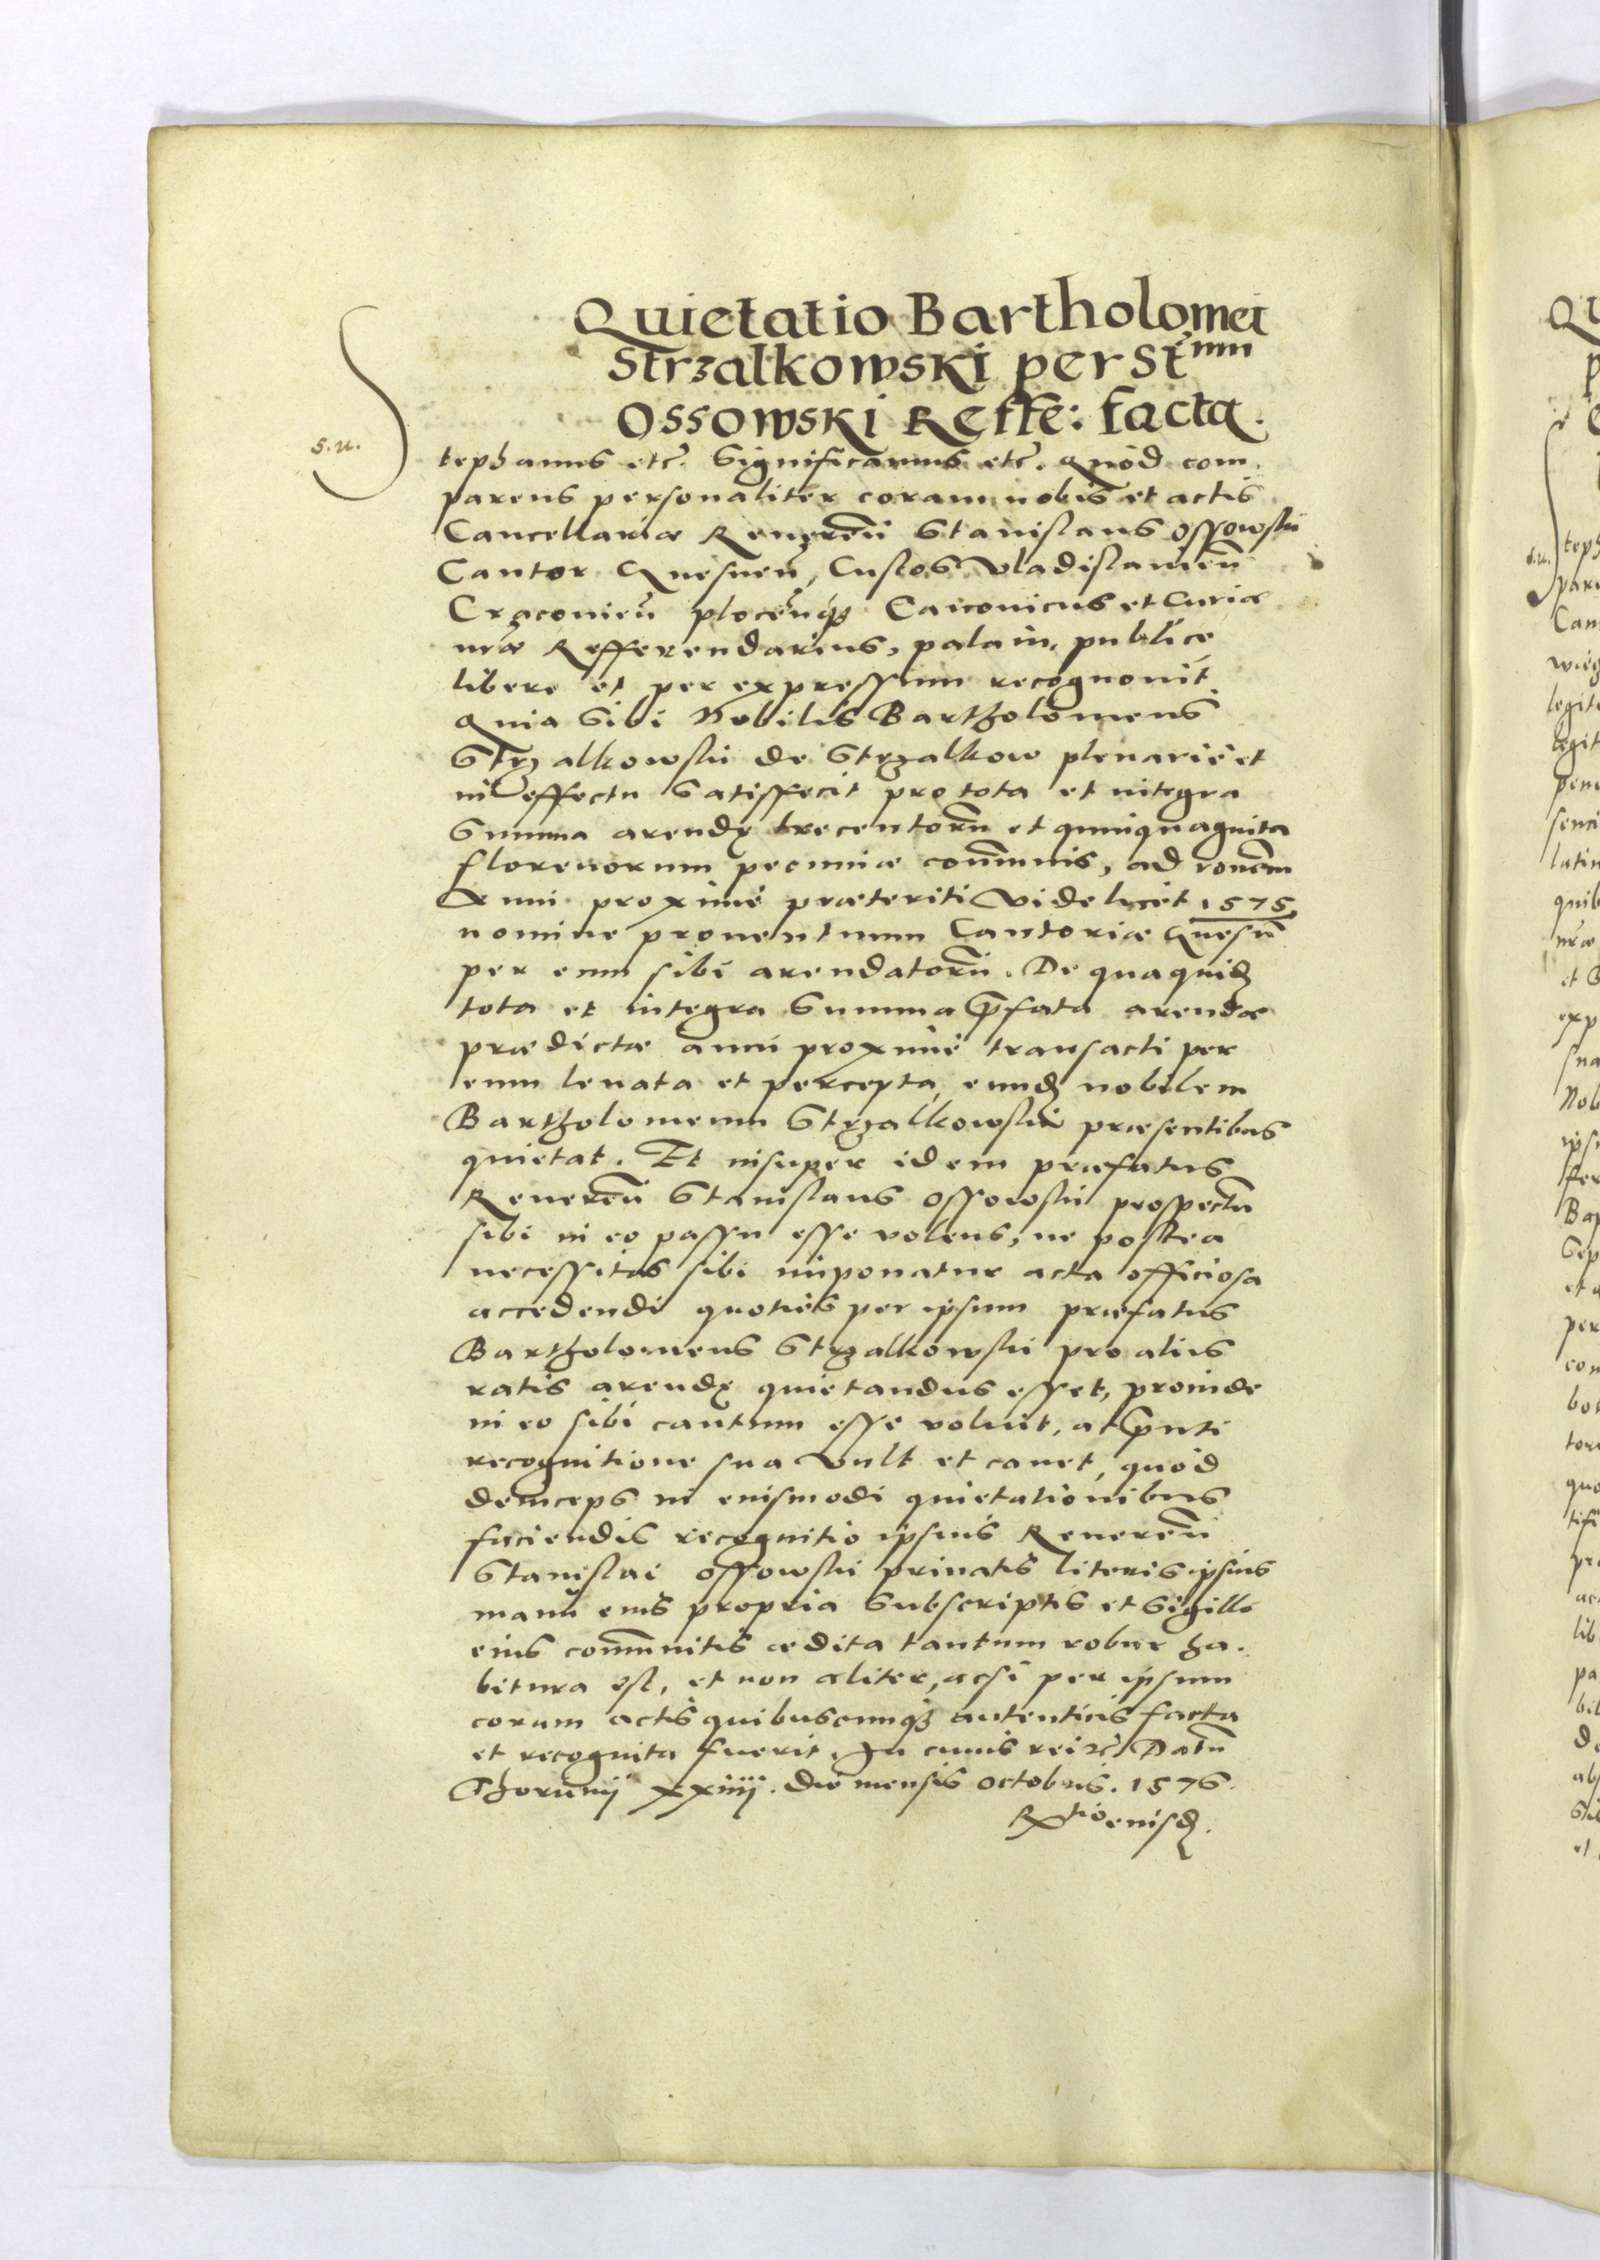 Quietatio Bartholomei
Strzalkowski per St̃num
Ossowski Reffe: facta.
S. u.
Stephanus etc̃. Significamus etc̃. Quòd com
parens personaliter coram nobis et actis
Cancellariæ Reueren̄ Stanislaus Ossowski
Cantor Gnesnen̄, Custos Vladislauien̄
Cracouien̄ plocen̄q̃ Canonicus et Curiæ
nr̃æ Refferendarius, palam, publicè
liberè et per expressum recognouit
Quia sibi Nobilis Bartholomeus
Strzalkowski de Strzalkow plenariè et
in effectu satisfecit pro tota et integra
Summa arendę trecentorū et quinquaginta
florenorum pecuniæ com̄unis, ad ronem̄
Anni proximè præteriti videlicet 1575,
nomine prouentuum Cantoriæ Gnesn̄
per eum sibi arendatorū. De qua quid̃
tota et integra Summa p̃fata arendæ
prædictæ anni proximè transacti per
eum leuata et percepta, eund̃ nobilem
Bartholomeum Strzalkowski præsentibus
quietat. Et insuper idem præfatus
Reueren̄ Stanislaus Ossowski prospectū
sibi in eo passu esse volens, ne postea
necessitas sibi imponatur acta officiosa
accedendi quoties per ipsum præfatus
Bartholomeus Strzalkowski pro aliis
ratis arendę quietandus esset, proinde
in eo sibi cautum esse voluit, at p̃nti
recognitione sua vult et cauet, quòd
deinceps in eiusmodi quietationibus
faciendis recognitio ipsius Reueren̄
Stanislai Ossowski priuatis literis ipsius
manu eius propria subscriptis et sigillo
eius com̄unitis ædita tantum robur ha-
bitura est, et non aliter, acsi per ipsum
coram actis quibuscunq̃ autenticis facta
et recognita fuerit. In cuius rei etc̃ Datū
Thorunij xxiiij. die mensis Octobris. 1576.
Rtio eiusd̃.